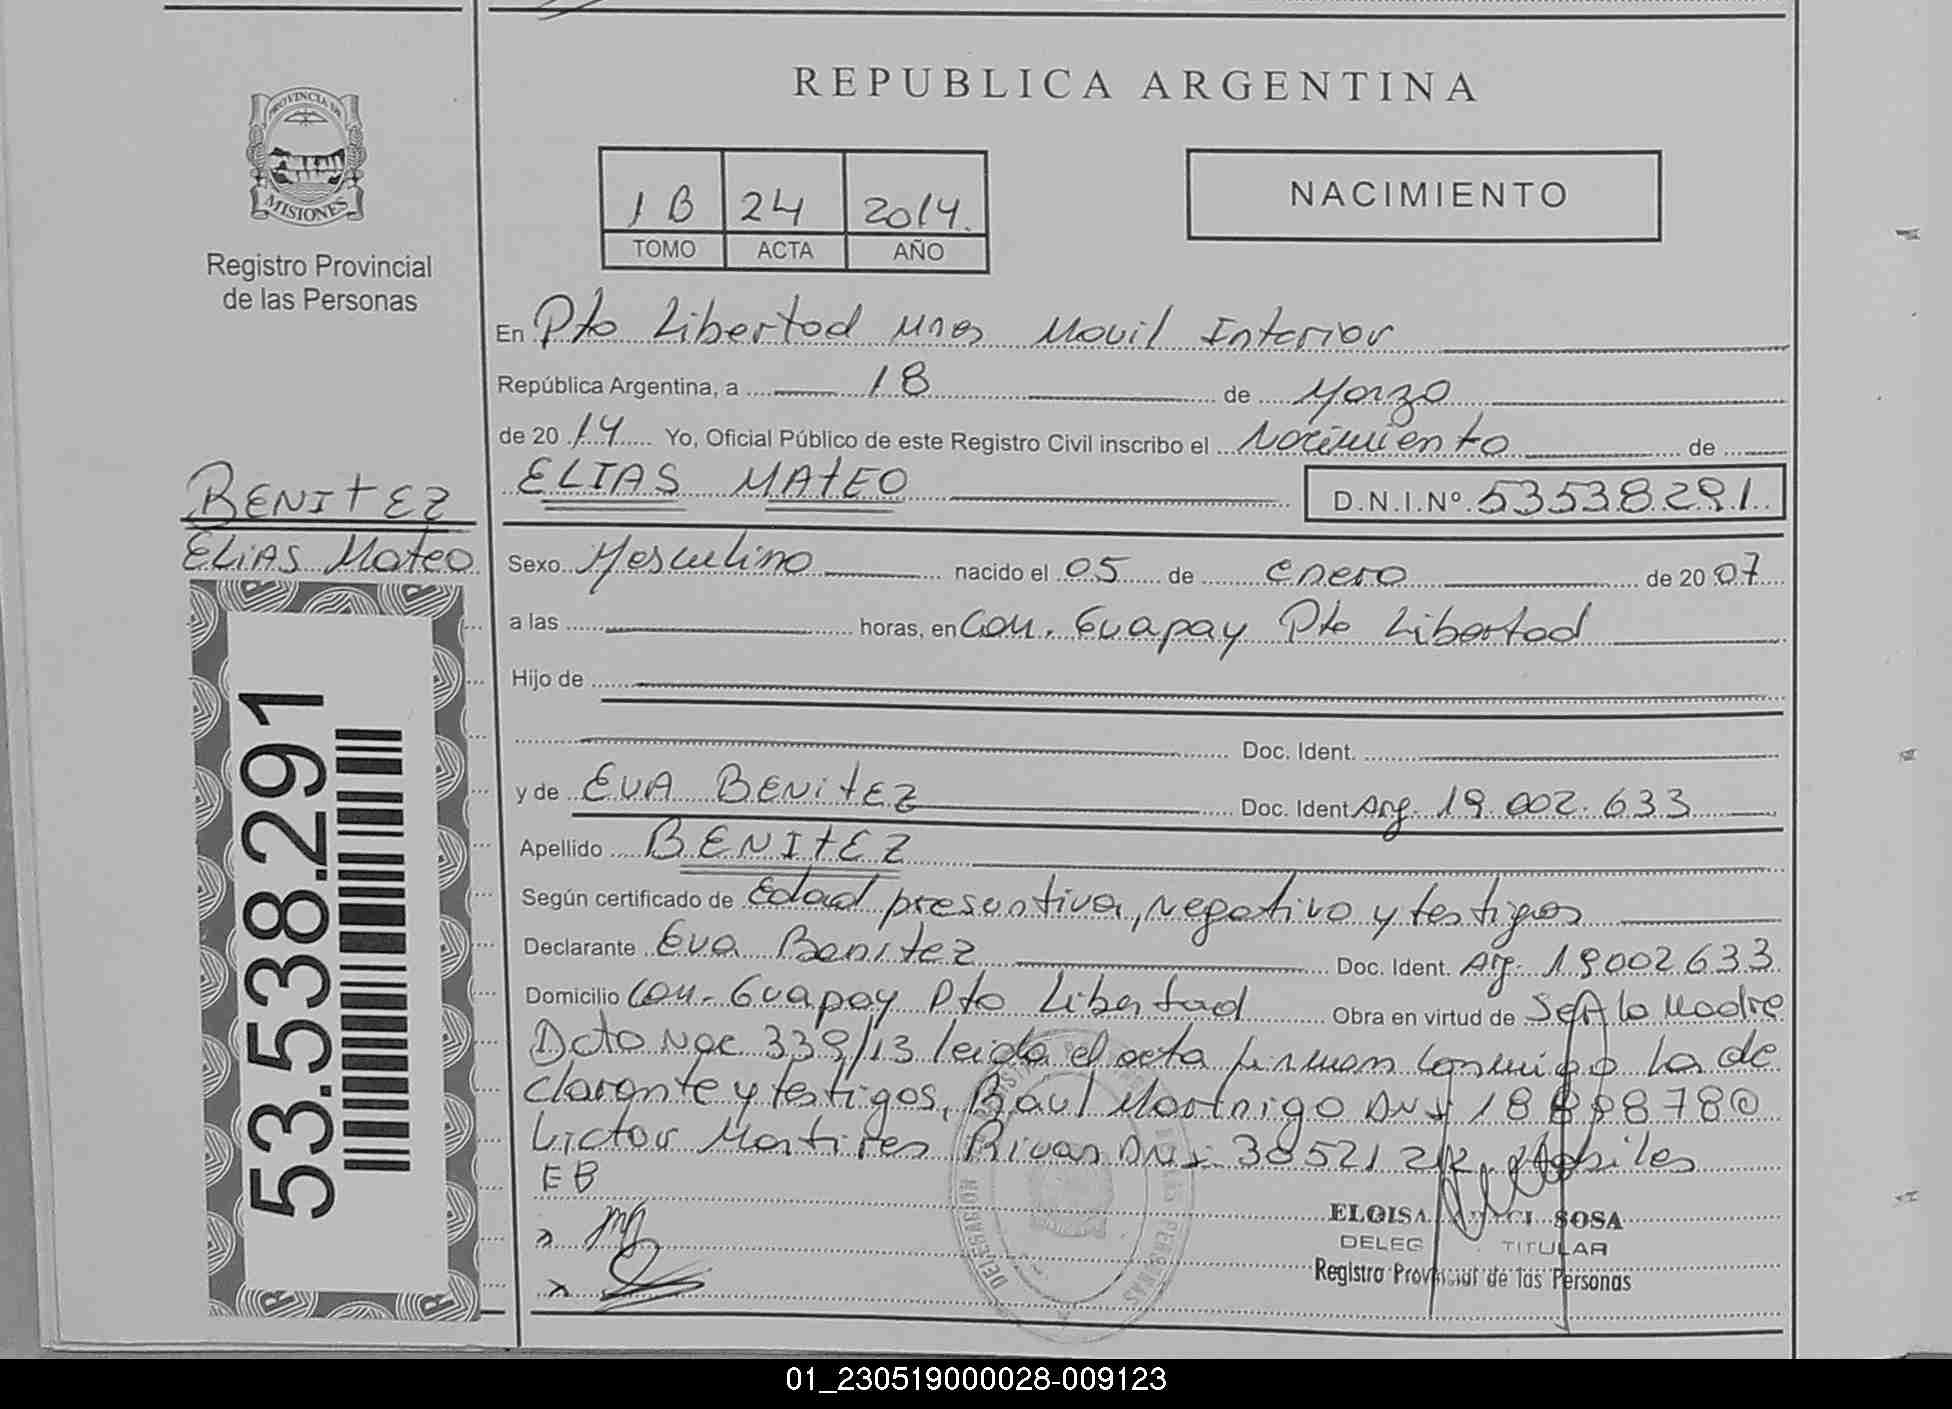 PROVINCIA DE
MISIONES
Registro Provincial
de las Personas
BENITEZ
ELIAS Mateo
53.538.291
REPUBLICA ARGENTINA
1 B 24 2014.
TOMO ACTA AÑO
NACIMIENTO
En Pto Libertad Mnes Movil Interior
República Argentina, a 18 de Marzo
de 2014 Yo, Oficial Público de este Registro Civil inscribo el Nacimiento de
ELIAS MATEO D.N.I.Nº 53538291
Sexo Masculino nacido el 05 de enero de 2007
a las horas, en Com. Guapay Pto Libertad
Hijo de
Doc. Ident.
y de EVA BENITEZ Doc. Ident Arg. 19.002.633
Apellido BENITEZ
Según certificado de Edad presuntiva, Negativo y testigos
Declarante Eva Benitez Doc. Ident. Arg. 19002633
Domicilio Com. Guapay Pto Libertad Obra en virtud de Ser la Madre
Dcto Nac 339/13 leida el acta firman conmigo la de
clarante y testigos, Raul Martinigo DNI 18
Victor Martires Rivas DNI Habiles
EB
ELOISA SOSA
DELEG TITULAR
Registro Provincial de las Personas
01_230519000028-009123